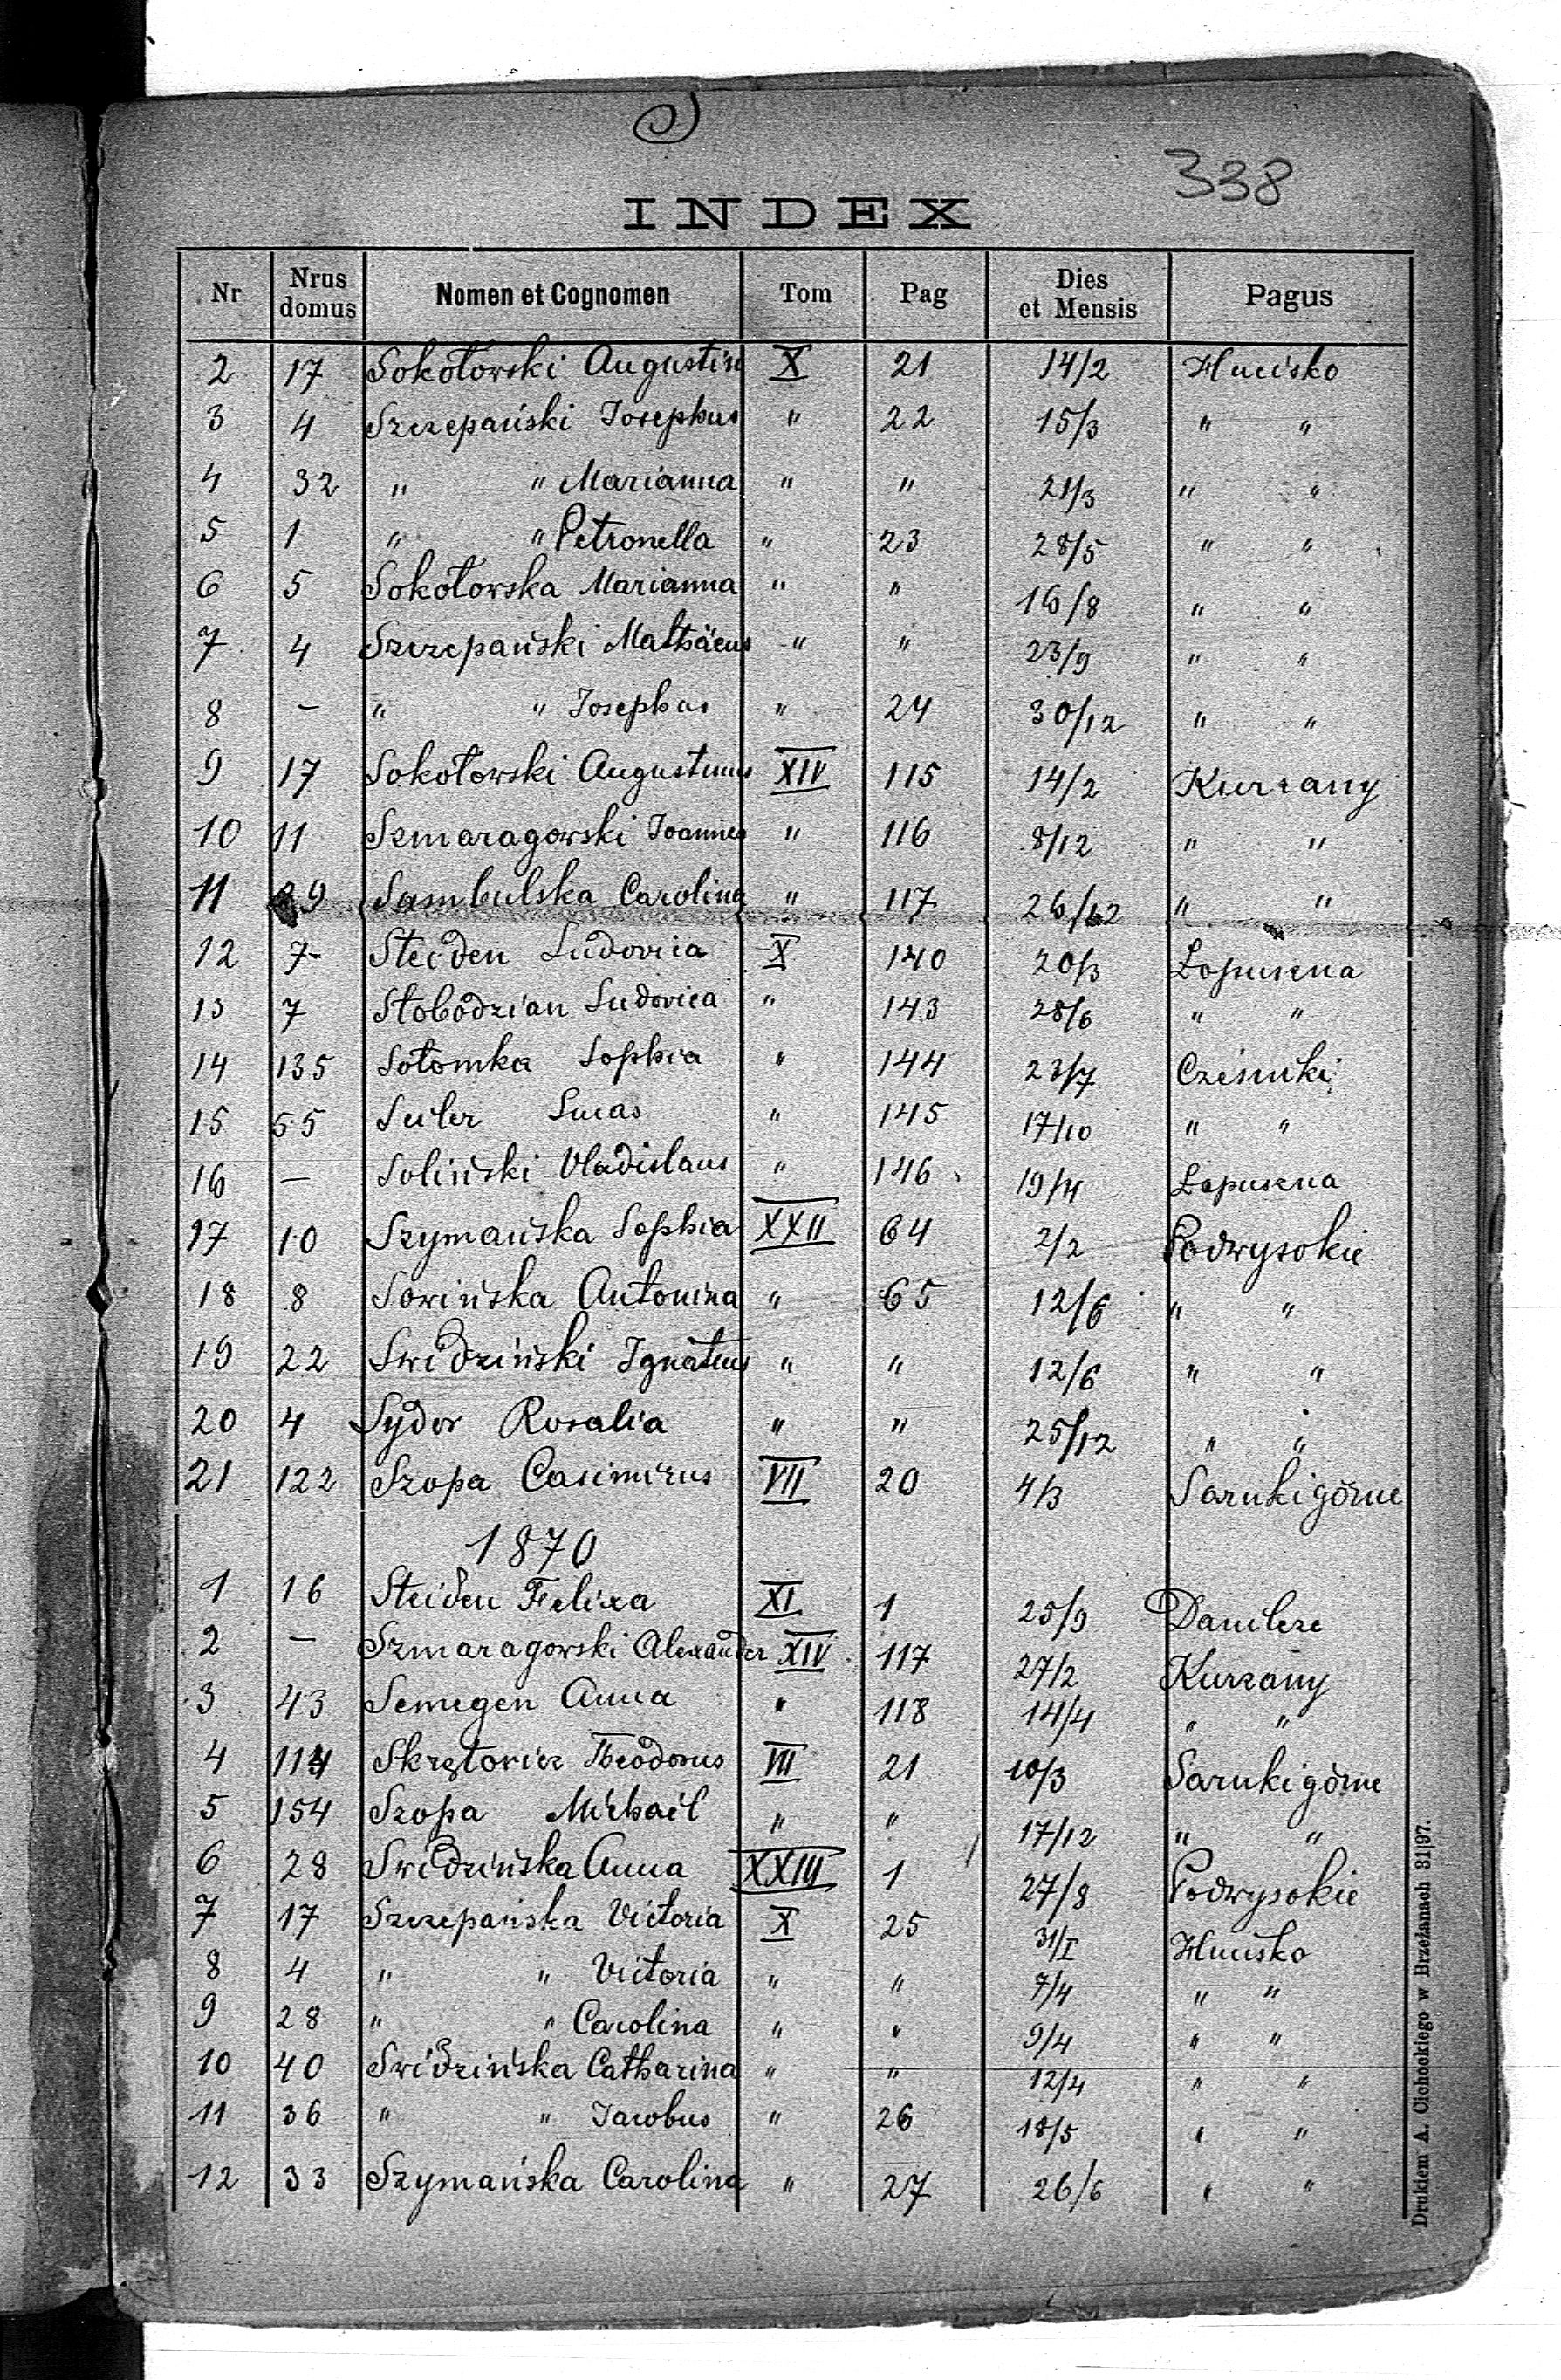 S
338
INDEX
Nr | Nrus domus | Nomen et Cognomen | Tom | Pag | Dies et Mensis | Pagus
2 | 17 | Sokołowski Augustin | X | 21 | 14/2 | Hucisko
3 | 4 | Szczepański Josephus | " | 22 | 15/3 | " "
4 | 32 | " " Marianna | " | " | 21/3 | " "
5 | 1 | " " Petronella | " | 23 | 28/5 | " "
6 | 5 | Sokołowska Marianna | " | " | 16/8 | " "
7 | 4 | Szczepański Mathäeus | " | " | 23/9 | " "
8 | – | " " Josephus | " | 24 | 30/12 | " "
9 | 17 | Sokołowski Augustinus | XIV | 115 | 14/2 | Kurzany
10 | 11 | Szmaragowski Joannes | " | 116 | 8/12 | " "
11 | 9 | Sambulska Carolina | " | 117 | 26/12 | " "
12 | 7 | Steiden Ludovica | X | 140 | 20/3 | Łopuszna
13 | 7 | Słobodzian Ludovica | " | 143 | 28/6 | " "
14 | 135 | Sołomka Sophia | " | 144 | 23/7 | Cześniki
15 | 55 | Seiler Lucas | " | 145 | 17/10 | " "
16 | – | Soliński Vladislaus | " | 146 | 19/4 | Łopuszna
17 | 10 | Szymańska Sophia | XXII | 64 | 2/2 | Podwysokie
18 | 8 | Sowińska Antonina | " | 65 | 12/6 | " "
19 | 22 | Swidziński Ignatius | " | " | 12/6 | " "
20 | 4 | Sydor Rosalia | " | " | 25/12 | " "
21 | 122 | Szopa Casimirus | VII | 20 | 4/3 | Sarnki górne
1870
1 | 16 | Steiden Felixa | XI | 1 | 25/9 | Danilcze
2 | – | Szmaragowski Alexander | XIV | 117 | 27/2 | Kurzany
3 | 43 | Semegen Anna | " | 118 | 14/4 | " "
4 | 114 | Skrętowicz Theodorus | VII | 21 | 10/3 | Sarnki górne
5 | 154 | Szopa Michaël | " | " | 17/12 | " "
6 | 28 | Swidzińska Anna | XXIII | 1 | 27/8 | Podwysokie
7 | 17 | Szczepańska Victoria | X | 25 | 31/I | Hucisko
8 | 4 | " " Victoria | " | " | 7/4 | " "
9 | 28 | " " Carolina | " | " | 9/4 | " "
10 | 40 | Swidzińska Catharina | " | " | 12/4 | " "
11 | 36 | " " Jacobus | " | 26 | 18/5 | " "
12 | 33 | Szymańska Carolina | " | 27 | 26/6 | " "
Drukiem A. Cichockiego w Brzeżanach 31|97.